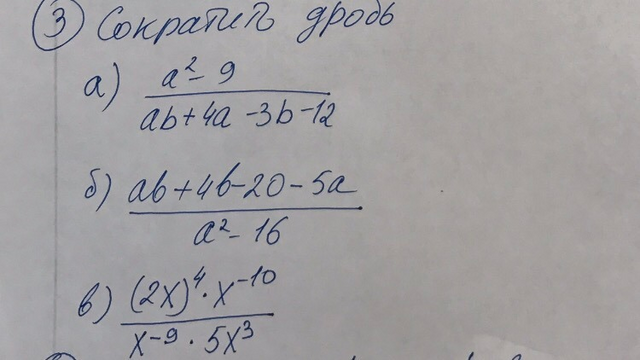 ③ Сократить дробь
а) a² - 9
ab + 4a - 3b - 12
б) ab + 4b - 20 - 5a
a² - 16
в) (2x)⁴ · x⁻¹⁰
x⁻⁹ · 5x³